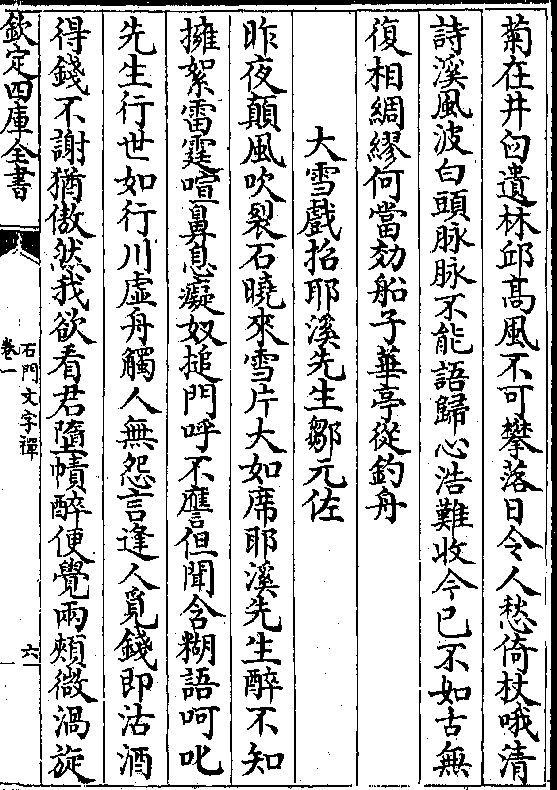 菊在井囪遺林邱髙風不可攀落日令人愁倚杖哦清
詩溪風波白頭脉脉不能語歸心浩難收今已不如古無
復相綢繆何當効船子華亭從釣舟
大雪戲招耶溪先生鄒元佐
昨夜顛風吹裂石曉來雪片大如席耶溪先生醉不知
擁絮雷霆喧鼻息癡奴搥門呼不譍但聞含糊語呵叱
先生行世如行川虛舟觸人無怨言逢人覓錢即沽酒
得錢不謝猶傲然我欲看君墮幘醉便覺兩頰微渦旋
欽定四庫全書
石門文字禪
卷一
六